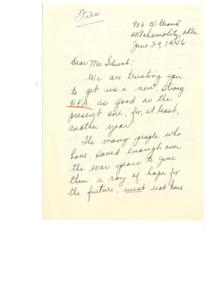 File
906 W Grand
Oklahoma City, Okla
June 29, 1946
Dear Mr. Schwab:
We are trusting you
to get us a new strong
O.P.A. as good as the
present one, for, at least,
another year.
The many people who
have saved enough over
the war years to give
them a ray of hope for
the future, must not have